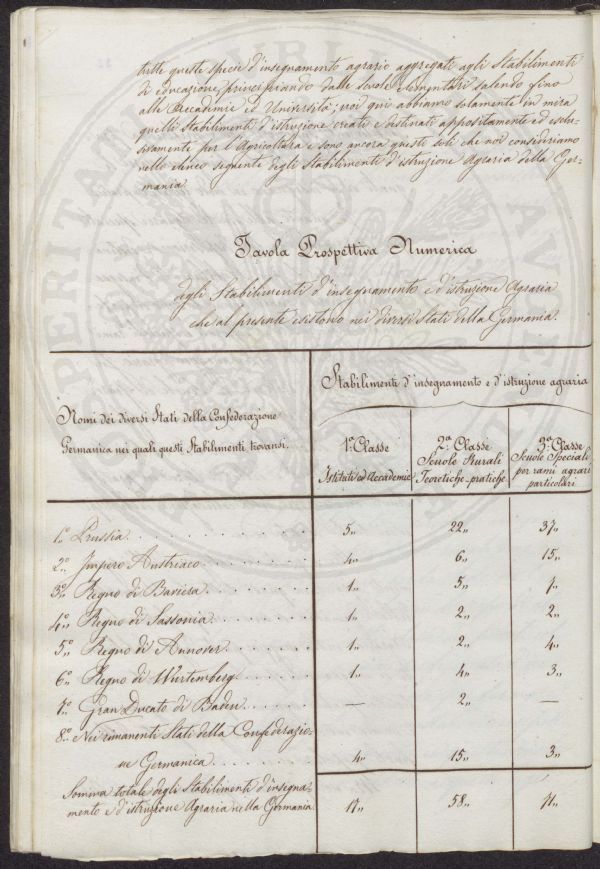 tutte queste specie d'insegnamento agrario aggregate agli Stabilimenti
di educazione, principiando dalle Scuole elementari salendo fino
alle Accademie ed Università; noi qui abbiamo solamente in mira
quelli Stabilimenti d'istruzione creati e destinati appositamente ed esclu-
sivamente per l'Agricoltura e sono ancora questi soli che noi consideriamo
nello elenco seguente degli Stabilimenti d'istruzione Agraria della Ger-
mania.
Tavola Prospettiva Numerica
degli Stabilimenti d'insegnamento e d'istruzione Agraria
che al presente esistono nei diversi Stati della Germania.
Nomi dei diversi Stati della Confederazione
Germanica nei quali questi Stabilimenti trovansi.
Stabilimenti d'insegnamento e d'istruzione agraria
1ª Classe
Istituti ed Accademie
2ª Classe
Scuole Rurali
Teoretiche-pratiche
3ª Classe
Scuole Speciali
per rami agrari
particolari
1º Prussia 5,, 22,, 37,,
2º Impero Austriaco 4,, 6,, 15,,
3º Regno di Baviera 1,, 5,, 7,,
4º Regno di Sassonia 1,, 2,, 2,,
5º Regno di Annover 1,, 2,, 4,,
6º Regno di Würtemberg 1,, 4,, 3,,
7º Gran Ducato di Baden — 2,, —
8º Nei rimanenti Stati della Confederazio-
ne Germanica 4,, 15,, 3,,
Somma totale degli Stabilimenti d'insegna-
mento e d'istruzione Agraria nella Germania 17,, 58,, 71,,